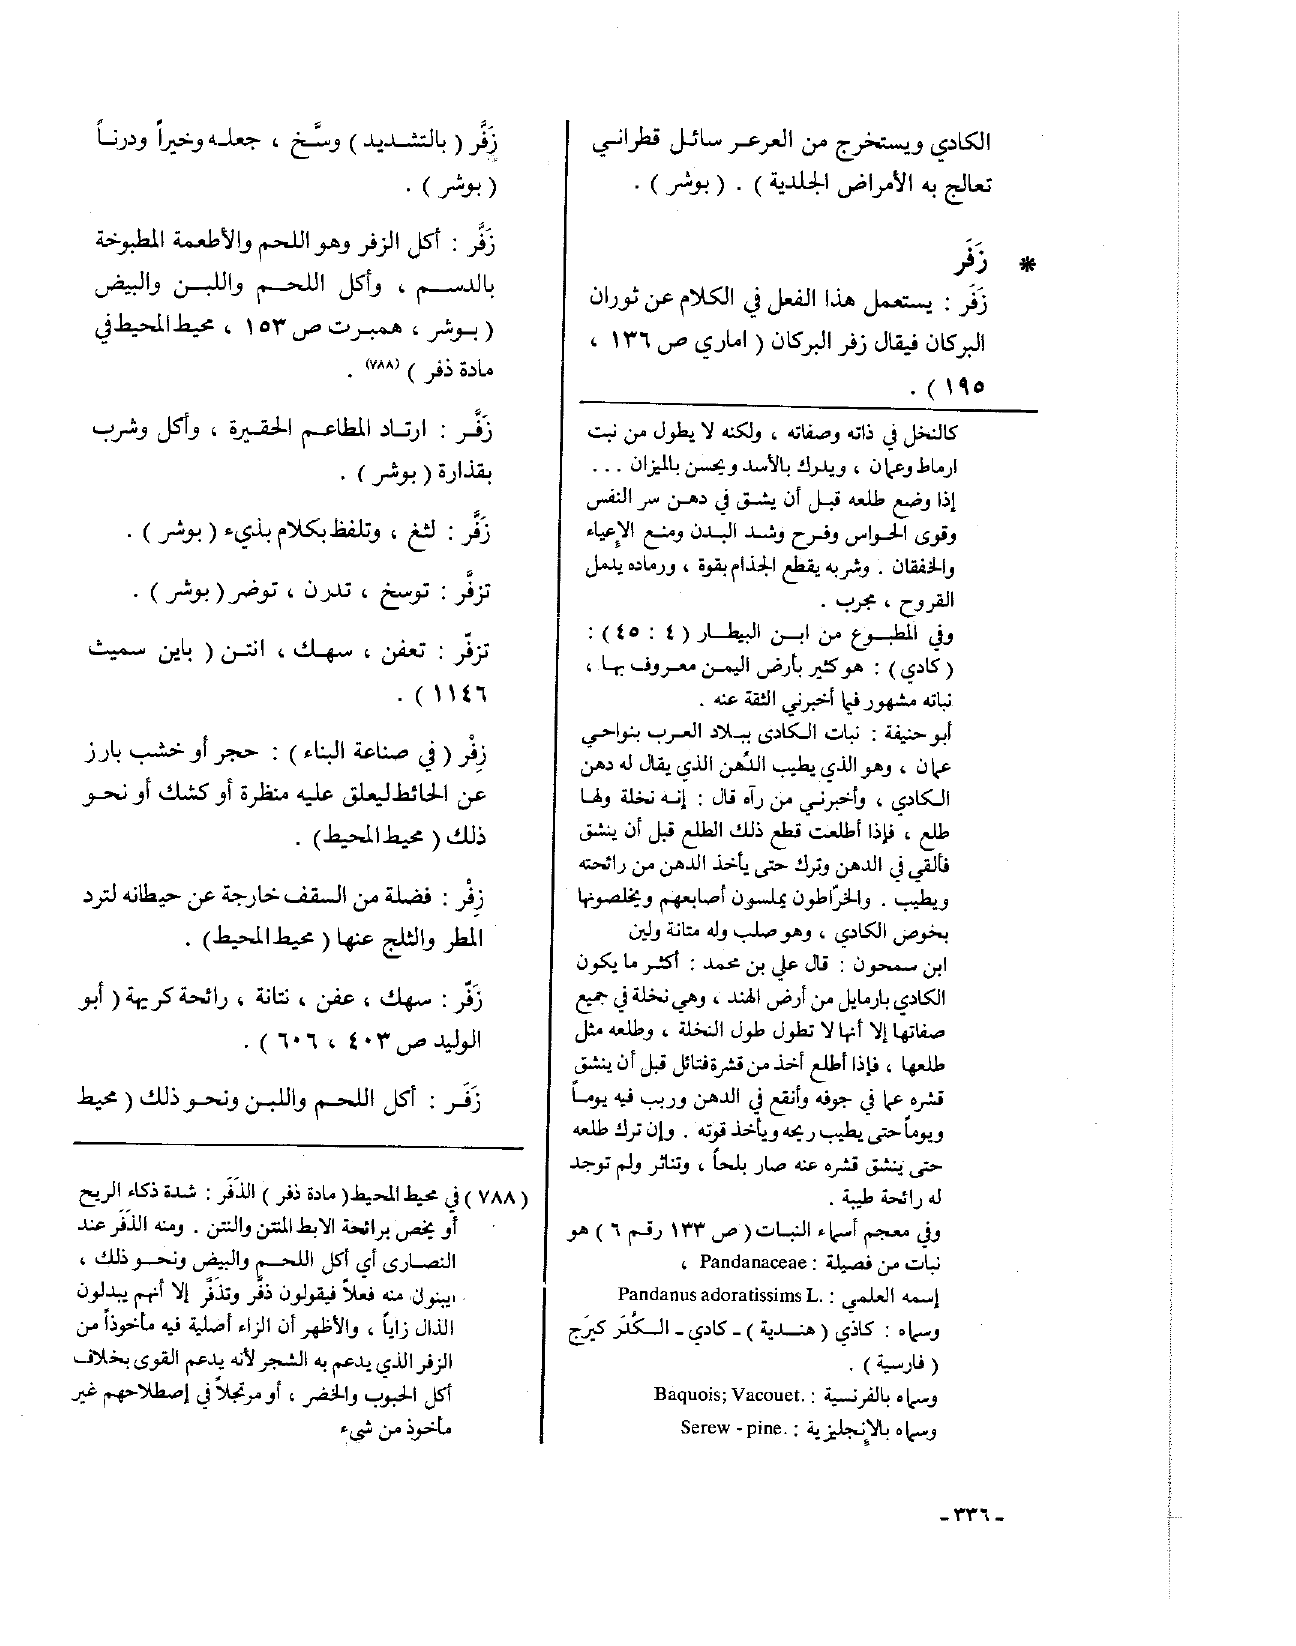 الكادي ويستخرج من العرعر سائل قطراني
تعالج به الأمراض الجلدية ) . ( بوشر ) .
* زَفَر
زَفَر : يستعمل هذا الفعل في الكلام عن ثوران
البركان فيقال زفر البركان ( اماري ص ١٣٦ ،
١٩٥ ) .
كالنخل في ذاته وصفاته ، ولكنه لا يطول من نبت
ارماط وعمان ، ويدرك بالأسد ويحسن بالميزان ...
إذا وضع طلعه قبل أن يشق في دهن سر النفس
وقوى الحواس وفرح وشد البدن ومنع الإعياء
والخفقان . وشربه يقطع الجذام بقوة ، ورماده يدمل
القروح ، مجرب .
وفي المطبوع من ابن البيطار ( ٤ : ٤٥ ) :
( كادي ) : هو كثير بأرض اليمن معروف بها ،
نباته مشهور فيما أخبرني الثقة عنه .
أبو حنيفة : نبات الكادى ببلاد العرب بنواحي
عمان ، وهو الذي يطيب الدُهن الذي يقال له دهن
الكادي ، وأخبرني من رآه قال : إنه نخلة ولها
طلع ، فإذا أطلعت قطع ذلك الطلع قبل أن ينشق
فألقي في الدهن وترك حتى يأخذ الدهن من رائحته
ويطيب . والخرّاطون يملسون أصابعهم ويخلصونها
بخوص الكادي ، وهو صلب وله متانة ولين
ابن سمحون : قال علي بن محمد : أكثر ما يكون
الكادي بارمايل من أرض الهند ، وهي نخلة في جميع
صفاتها إلا أنها لا تطول طول النخلة ، وطلعه مثل
طلعها ، فإذا أطلع أخذ من قشرة فتائل قبل أن ينشق
قشره عما في جوفه وأنقع في الدهن وربب فيه يوماً
ويوماً حتى يطيب ريحه ويأخذ قوته . وإن ترك طلعه
حتى ينشق قشره عنه صار بلحاً ، وتناثر ولم توجد
له رائحة طيبة .
وفي معجم أسماء النبات ( ص ١٣٣ رقم ٦ ) هو
نبات من فصيلة : Pandanaceae ،
إسمه العلمي : Pandanus adoratissims L.
وسماه : كاذي ( هندية ) - كادي - الكُدَر كيرَج
( فارسية ) .
وسماه بالفرنسية : Baquois; Vacouet.
وسماه بالإنجليزية : Serew - pine.
زَفَّر ( بالتشديد ) وسَّخ ، جعله وخيراً ودرناً
( بوشر ) .
زَفَّر : أكل الزفر وهو اللحم والأطعمة المطبوخة
بالدسم ، وأكل اللحم واللبن والبيض
( بوشر ، همبرت ص ١٥٣ ، محيط المحيط في
مادة ذفر ) (٧٨٨) .
زَفَّر : ارتاد المطاعم الحقيرة ، وأكل وشرب
بقذارة ( بوشر ) .
زَفَّر : لثغ ، وتلفظ بكلام بذيء ( بوشر ) .
تزفَّر : توسخ ، تدرن ، توضر ( بوشر ) .
تزفّر : تعفن ، سهك ، انتن ( باين سميث
١١٤٦ ) .
زِفْر ( في صناعة البناء ) : حجر أو خشب بارز
عن الحائط ليعلق عليه منظرة أو كشك أو نحو
ذلك ( محيط المحيط ) .
زِفْر : فضلة من السقف خارجة عن حيطانه لترد
المطر والثلج عنها ( محيط المحيط ) .
زَفّر : سهك ، عفن ، نتانة ، رائحة كريهة ( أبو
الوليد ص ٤٠٣ ، ٦٠٦ ) .
زَفَر : أكل اللحم واللبن ونحو ذلك ( محيط
( ٧٨٨ ) في محيط المحيط ( مادة ذفر ) الذَفَر : شدة ذكاء الريح
أو يخص برائحة الابط المنتن والنتن . ومنه الذَفَر عند
النصارى أي أكل اللحم والبيض ونحو ذلك ،
يبنون منه فعلاً فيقولون ذفَّر وتذفَّر إلا أنهم يبدلون
الذال زاياً ، والأظهر أن الزاء أصلية فيه مأخوذاً من
الزفر الذي يدعم به الشجر لأنه يدعم القوى بخلاف
أكل الحبوب والخضر ، أو مرتجلاً في إصطلاحهم غير
مأخوذ من شيء
- ٣٣٦ -